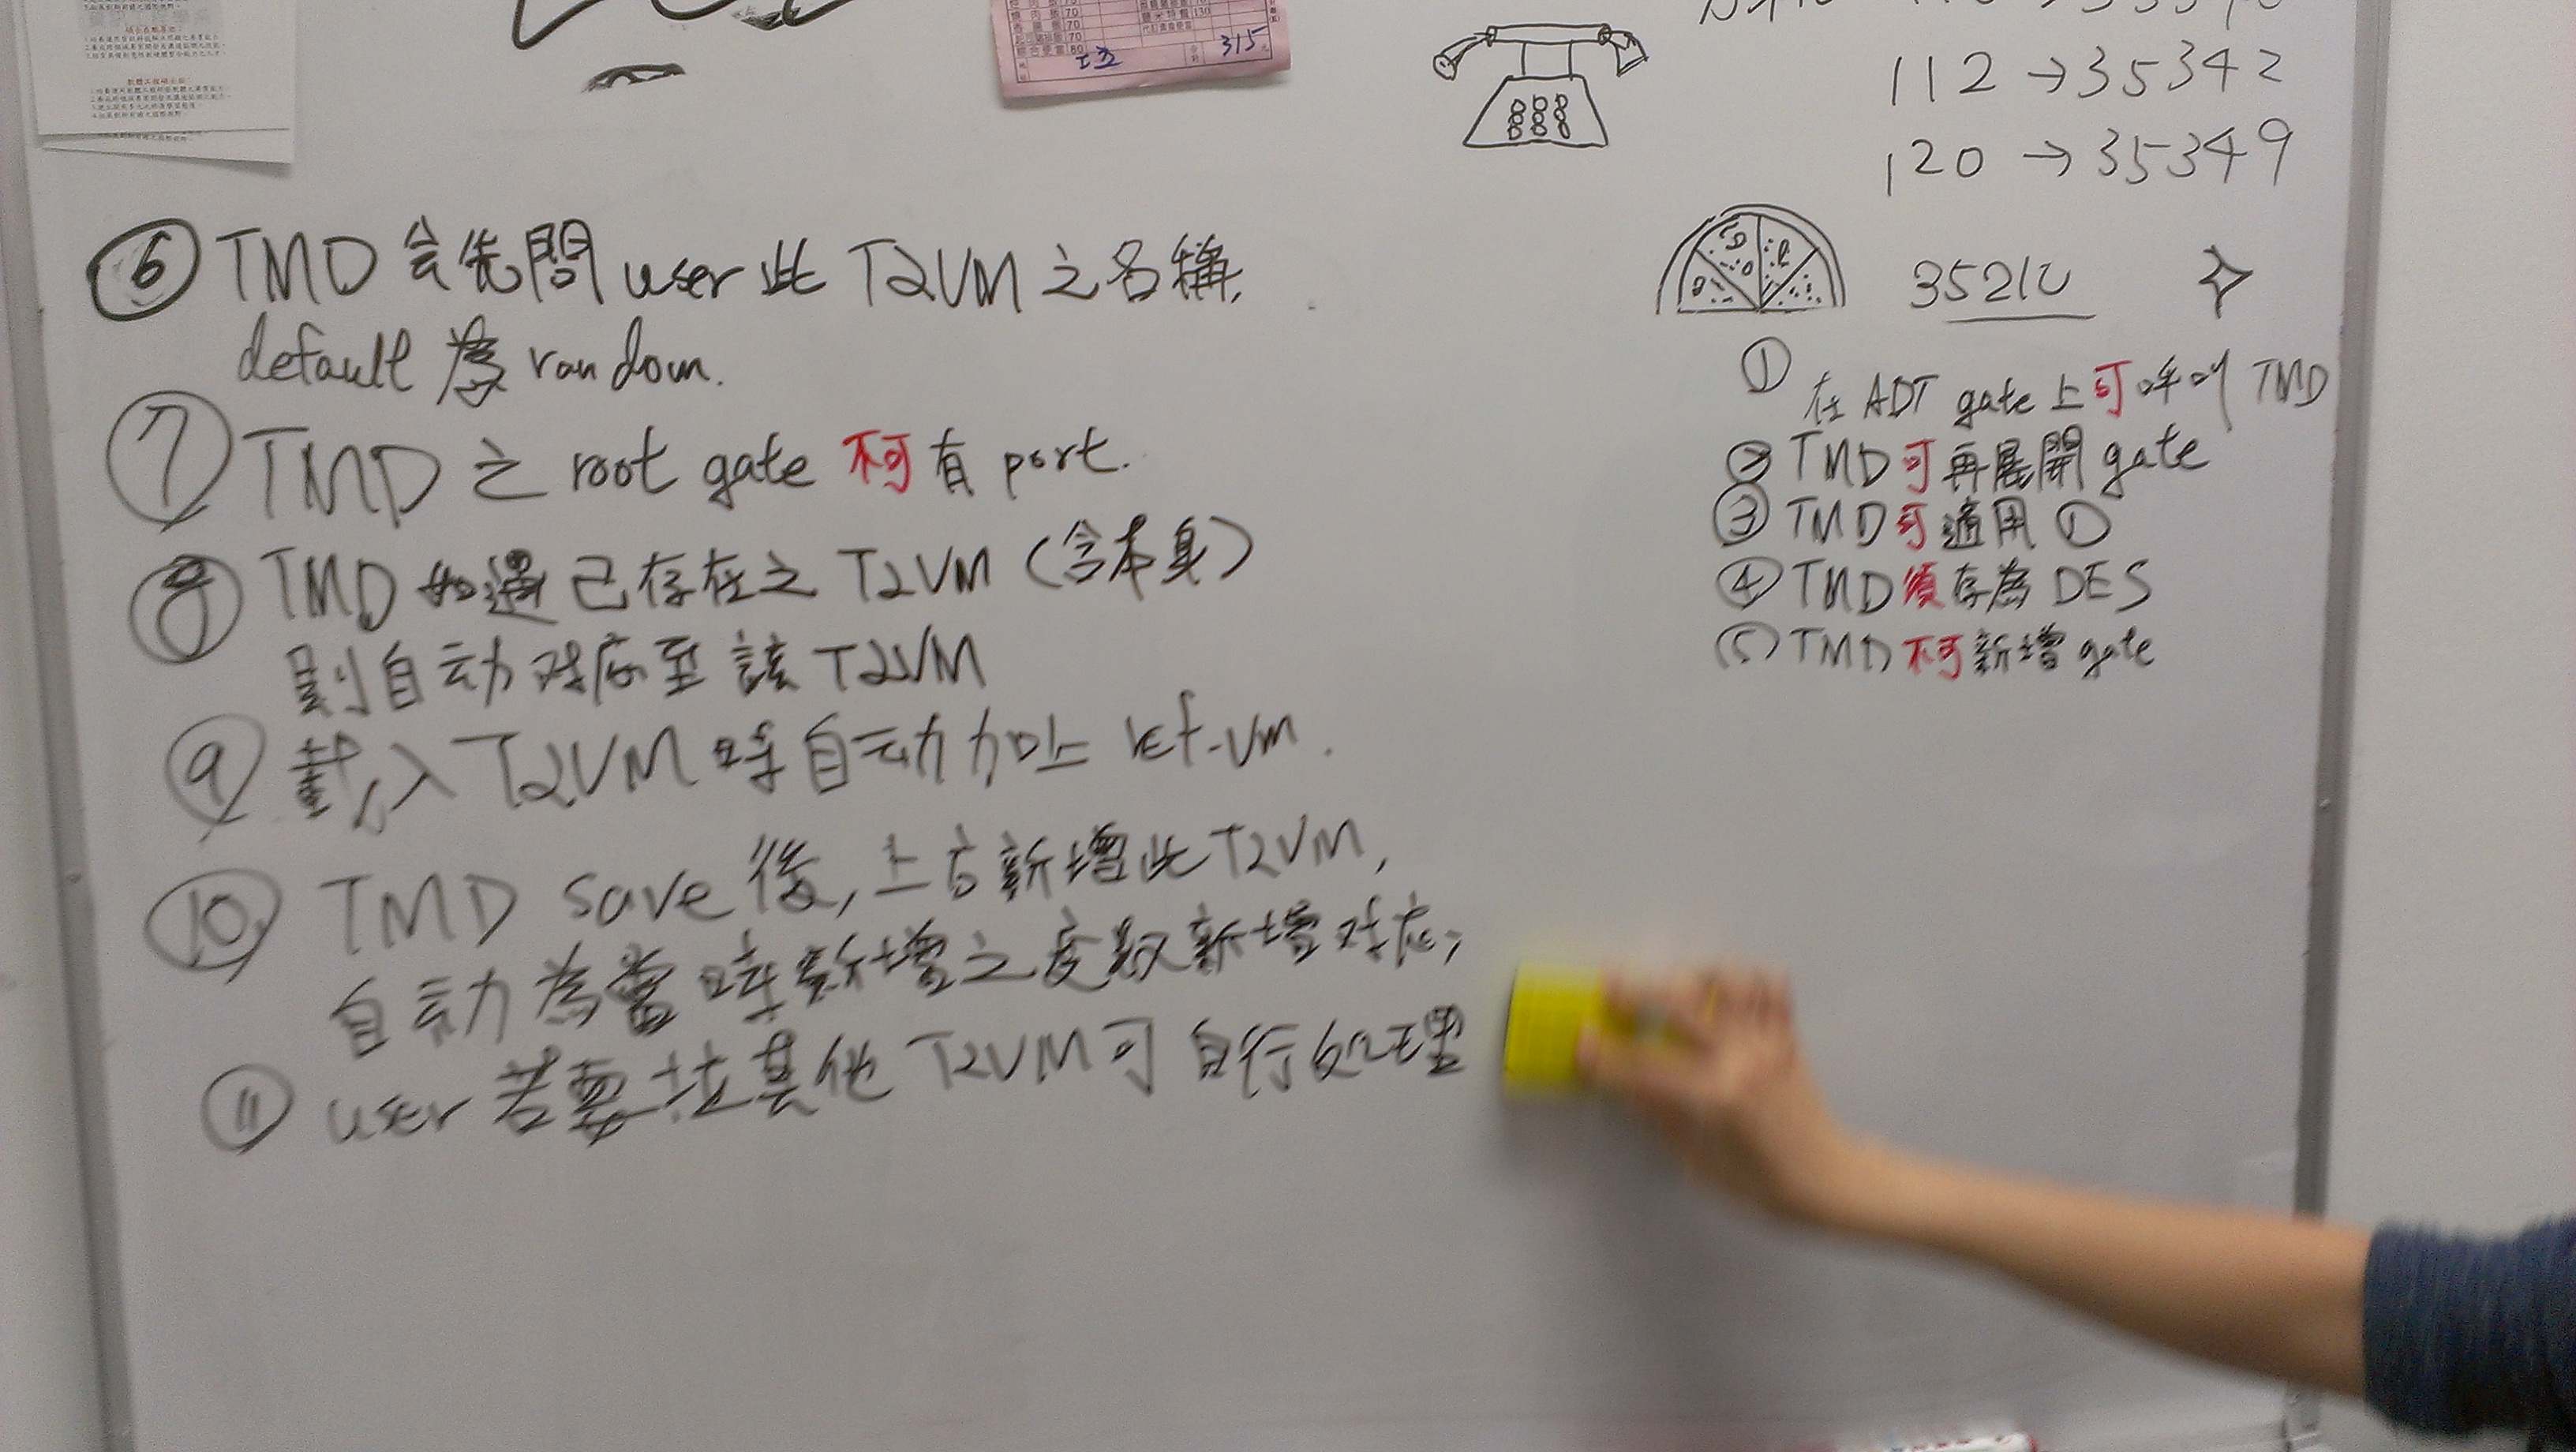 112 → 35342
120 → 35349
35210
① 在 ADT gate 上可呼叫 TMD
② TMD 可再展開 gate
③ TMD 可適用 ①
④ TMD 須存為 DES
⑤ TMD 不可新增 gate
⑥ TMD 会先問 user 此 T2VM 之名稱,
default 為 random.
⑦ TMD 之 root gate 不可有 port.
⑧ TMD 如遇已存在之 T2VM (含本身)
則自动对应至該 T2VM
⑨ 載入 T2VM 時自动加上 ref-vm.
⑩ TMD save 後, 上方新增此 T2VM,
自动為當時新增之度数新增对应,
⑪ user 若要拉其他 T2VM 可自行处理
70
70
70
綜合便當 80
工五
315